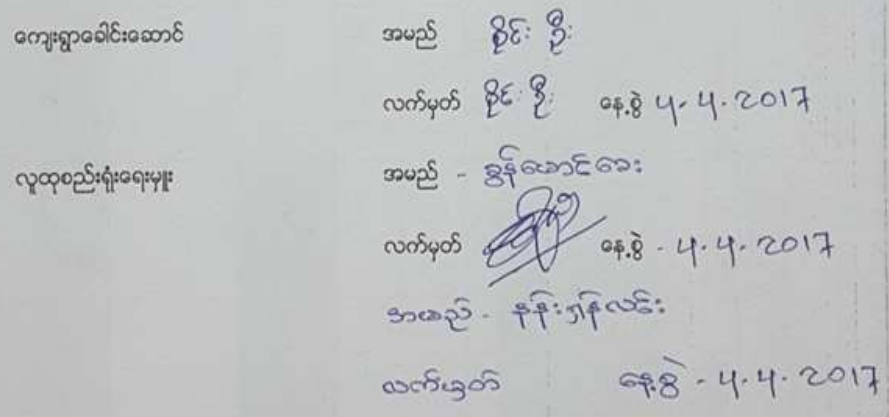 ကျေးရွာခေါင်းဆောင် အမည် စိုင်း ဦး
လက်မှတ် စိုင်း ဦး နေ့စွဲ 4.4.2017
လူထုစည်းရုံးရေးမှူး အမည် - ခွန်အောင်အေး
လက်မှတ် နေ့စွဲ - 4.4.2017
အမည် - နန်းဂျန်လင်း
လက်မှတ် နေ့စွဲ - 4.4.2017